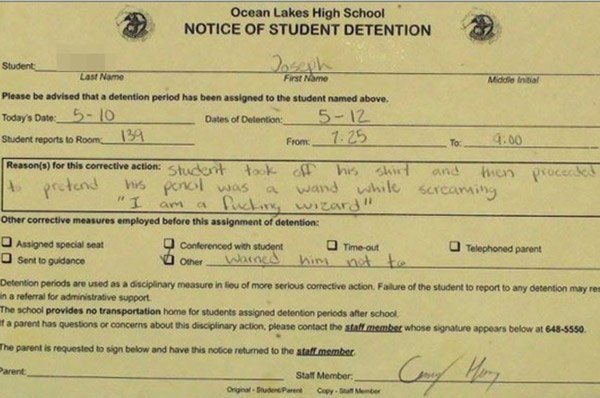 Ocean Lakes High School
NOTICE OF STUDENT DETENTION
Student: Joseph
Last Name First Name Middle Initial
Please be advised that a detention period has been assigned to the student named above.
Today's Date: 5-10 Dates of Detention: 5-12
Student reports to Room: 139 From: 7.25 To: 9.00
Reason(s) for this corrective action: Student took off his shirt and then proceeded
to pretend his pencil was a wand while screaming
"I am a fucking wizard"
Other corrective measures employed before this assignment of detention:
Assigned special seat Conferenced with student Time-out Telephoned parent
Sent to guidance Other warned him not to
Detention periods are used as a disciplinary measure in lieu of more serious corrective action. Failure of the student to report to any detention may res
in a referral for administrative support.
The school provides no transportation home for students assigned detention periods after school.
If a parent has questions or concerns about this disciplinary action, please contact the staff member whose signature appears below at 648-5550.
The parent is requested to sign below and have this notice returned to the staff member.
Parent: Staff Member:
Original - Student/Parent Copy - Staff Member